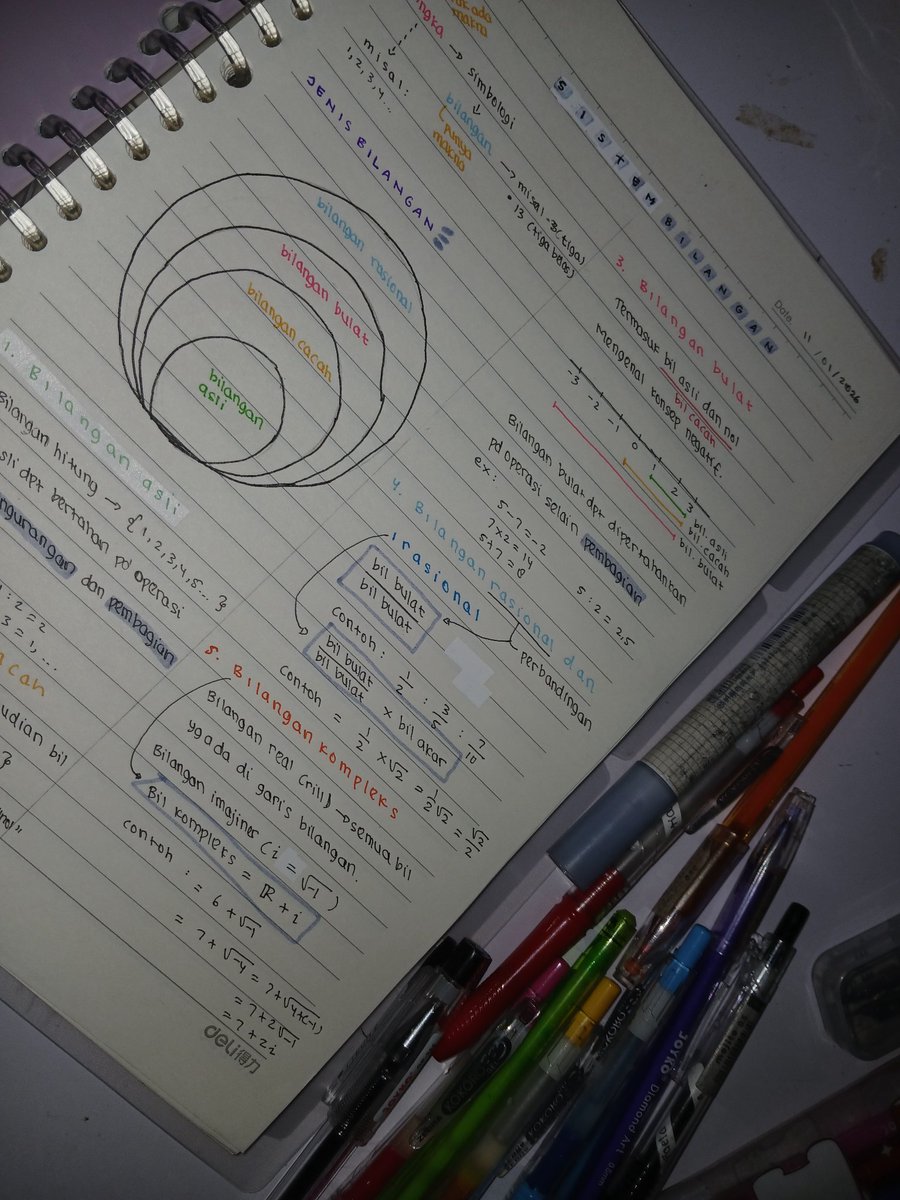 SISTEM BILANGAN
Date. 11 / 01 / 2026
misal :
1, 2, 3, 4 ..
→ simbologi
↓
bilangan
(punya
makna
→ misal - 3 (tiga)
• 13 (tiga belas)
JENIS BILANGAN
bilangan rasional
bilangan bulat
bilangan cacah
bilangan
asli
1. Bilangan asli
Bilangan hitung → { 1, 2, 3, 4, 5 ... }
dpt bertahan pd operasi
dan pembagian
: 2 = 2
3 = 1, ...
3. Bilangan bulat
Termasuk bil asli dan nol
bil cacah
Mengenal konsep negatif.
-3 -2 -1 0 1 2 3
bil. asli
bil. cacah
bil. bulat
Bilangan bulat dpt dipertahankan
pd operasi selain pembagian
ex : 5 - 7 = -2
7 x 2 = 14
5 + 7 = 8
5 : 2 = 2,5
4. Bilangan rasional dan
irasional
bil bulat
bil bulat
perbandingan
Contoh : 1/2 : 3/5 : 7/10
bil bulat
bil bulat x bil akar
contoh = 1/2 x √2 = 1/2 √2 = √2/2
5. Bilangan kompleks
Bilangan real (riil) → semua bil
yg ada di garis bilangan.
Bilangan imajiner (i = √-1)
Bil kompleks = R + i
contoh : = 6 + √-1
= 7 + √-4 = 7 + √4x(-1)
= 7 + 2√-1
= 7 + 2i
deli得力
JOYKO Diamond Art 0.5mm